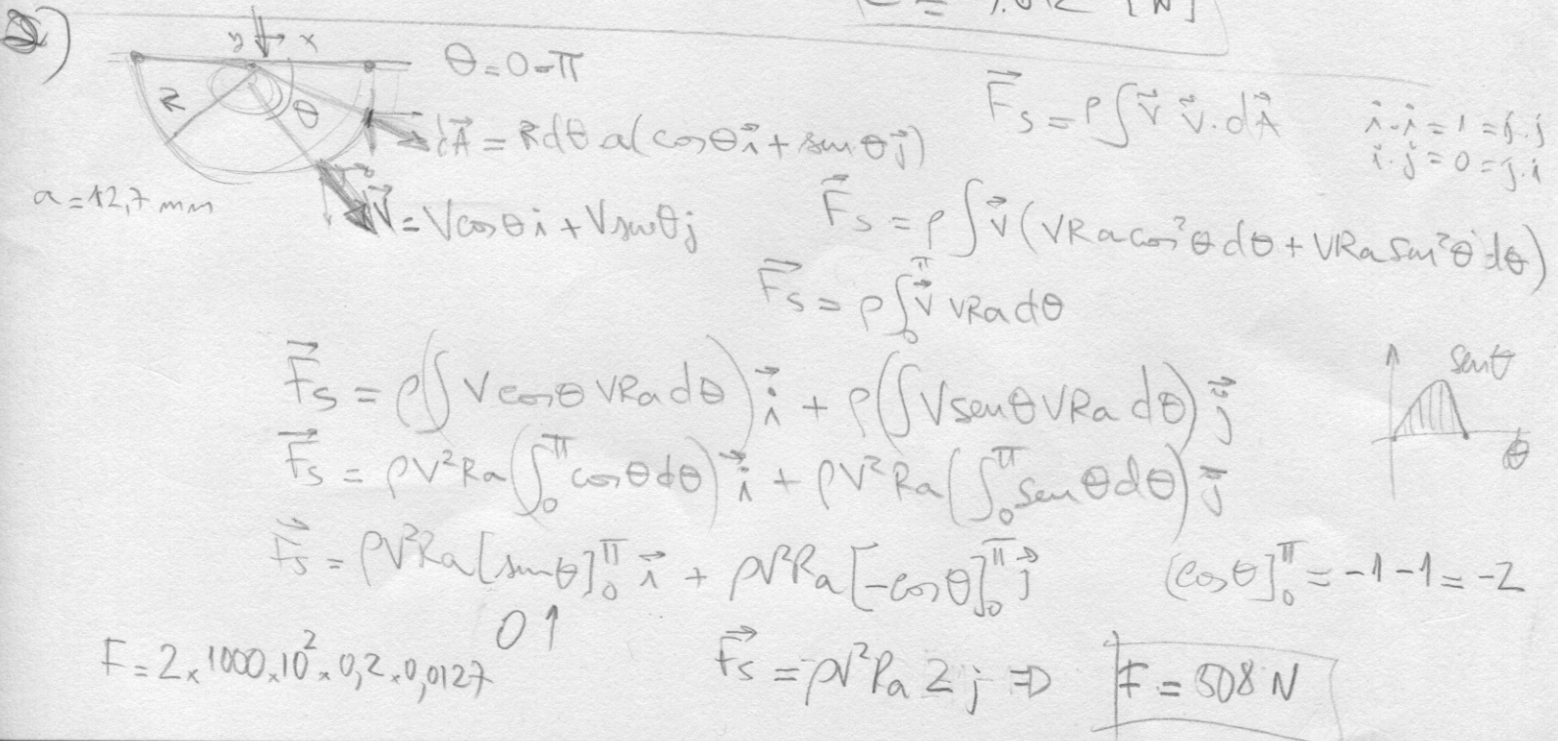 2)
y x
θ = 0 - π
R
θ
dA⃗ = R dθ a (cos θ i⃗ + sen θ j⃗)
a = 12,7 mm
V⃗ = V cos θ i + V sen θ j
F⃗s = ρ ∫ v⃗ v⃗ . dA⃗
i . i = 1 = j . j
i . j = 0 = j . i
F⃗s = ρ ∫ v⃗ (VRa cos²θ dθ + VRa sen²θ dθ)
F⃗s = ρ ∫₀^π v⃗ VRa dθ
F⃗s = ρ (∫ V cos θ VRa dθ) i⃗ + ρ (∫ V sen θ VRa dθ) j⃗
sen θ
θ
F⃗s = ρV²Ra (∫₀^π cos θ dθ) i⃗ + ρV²Ra (∫₀^π sen θ dθ) j⃗
F⃗s = ρV²Ra [sen θ]₀^π i⃗ + ρV²Ra [-cos θ]₀^π j⃗
[cos θ]₀^π = -1 - 1 = -2
0 ↑
F = 2 x 1000 x 10² x 0,2 x 0,0127
F⃗s = ρV²Ra 2 j ⇒ F = 508 N